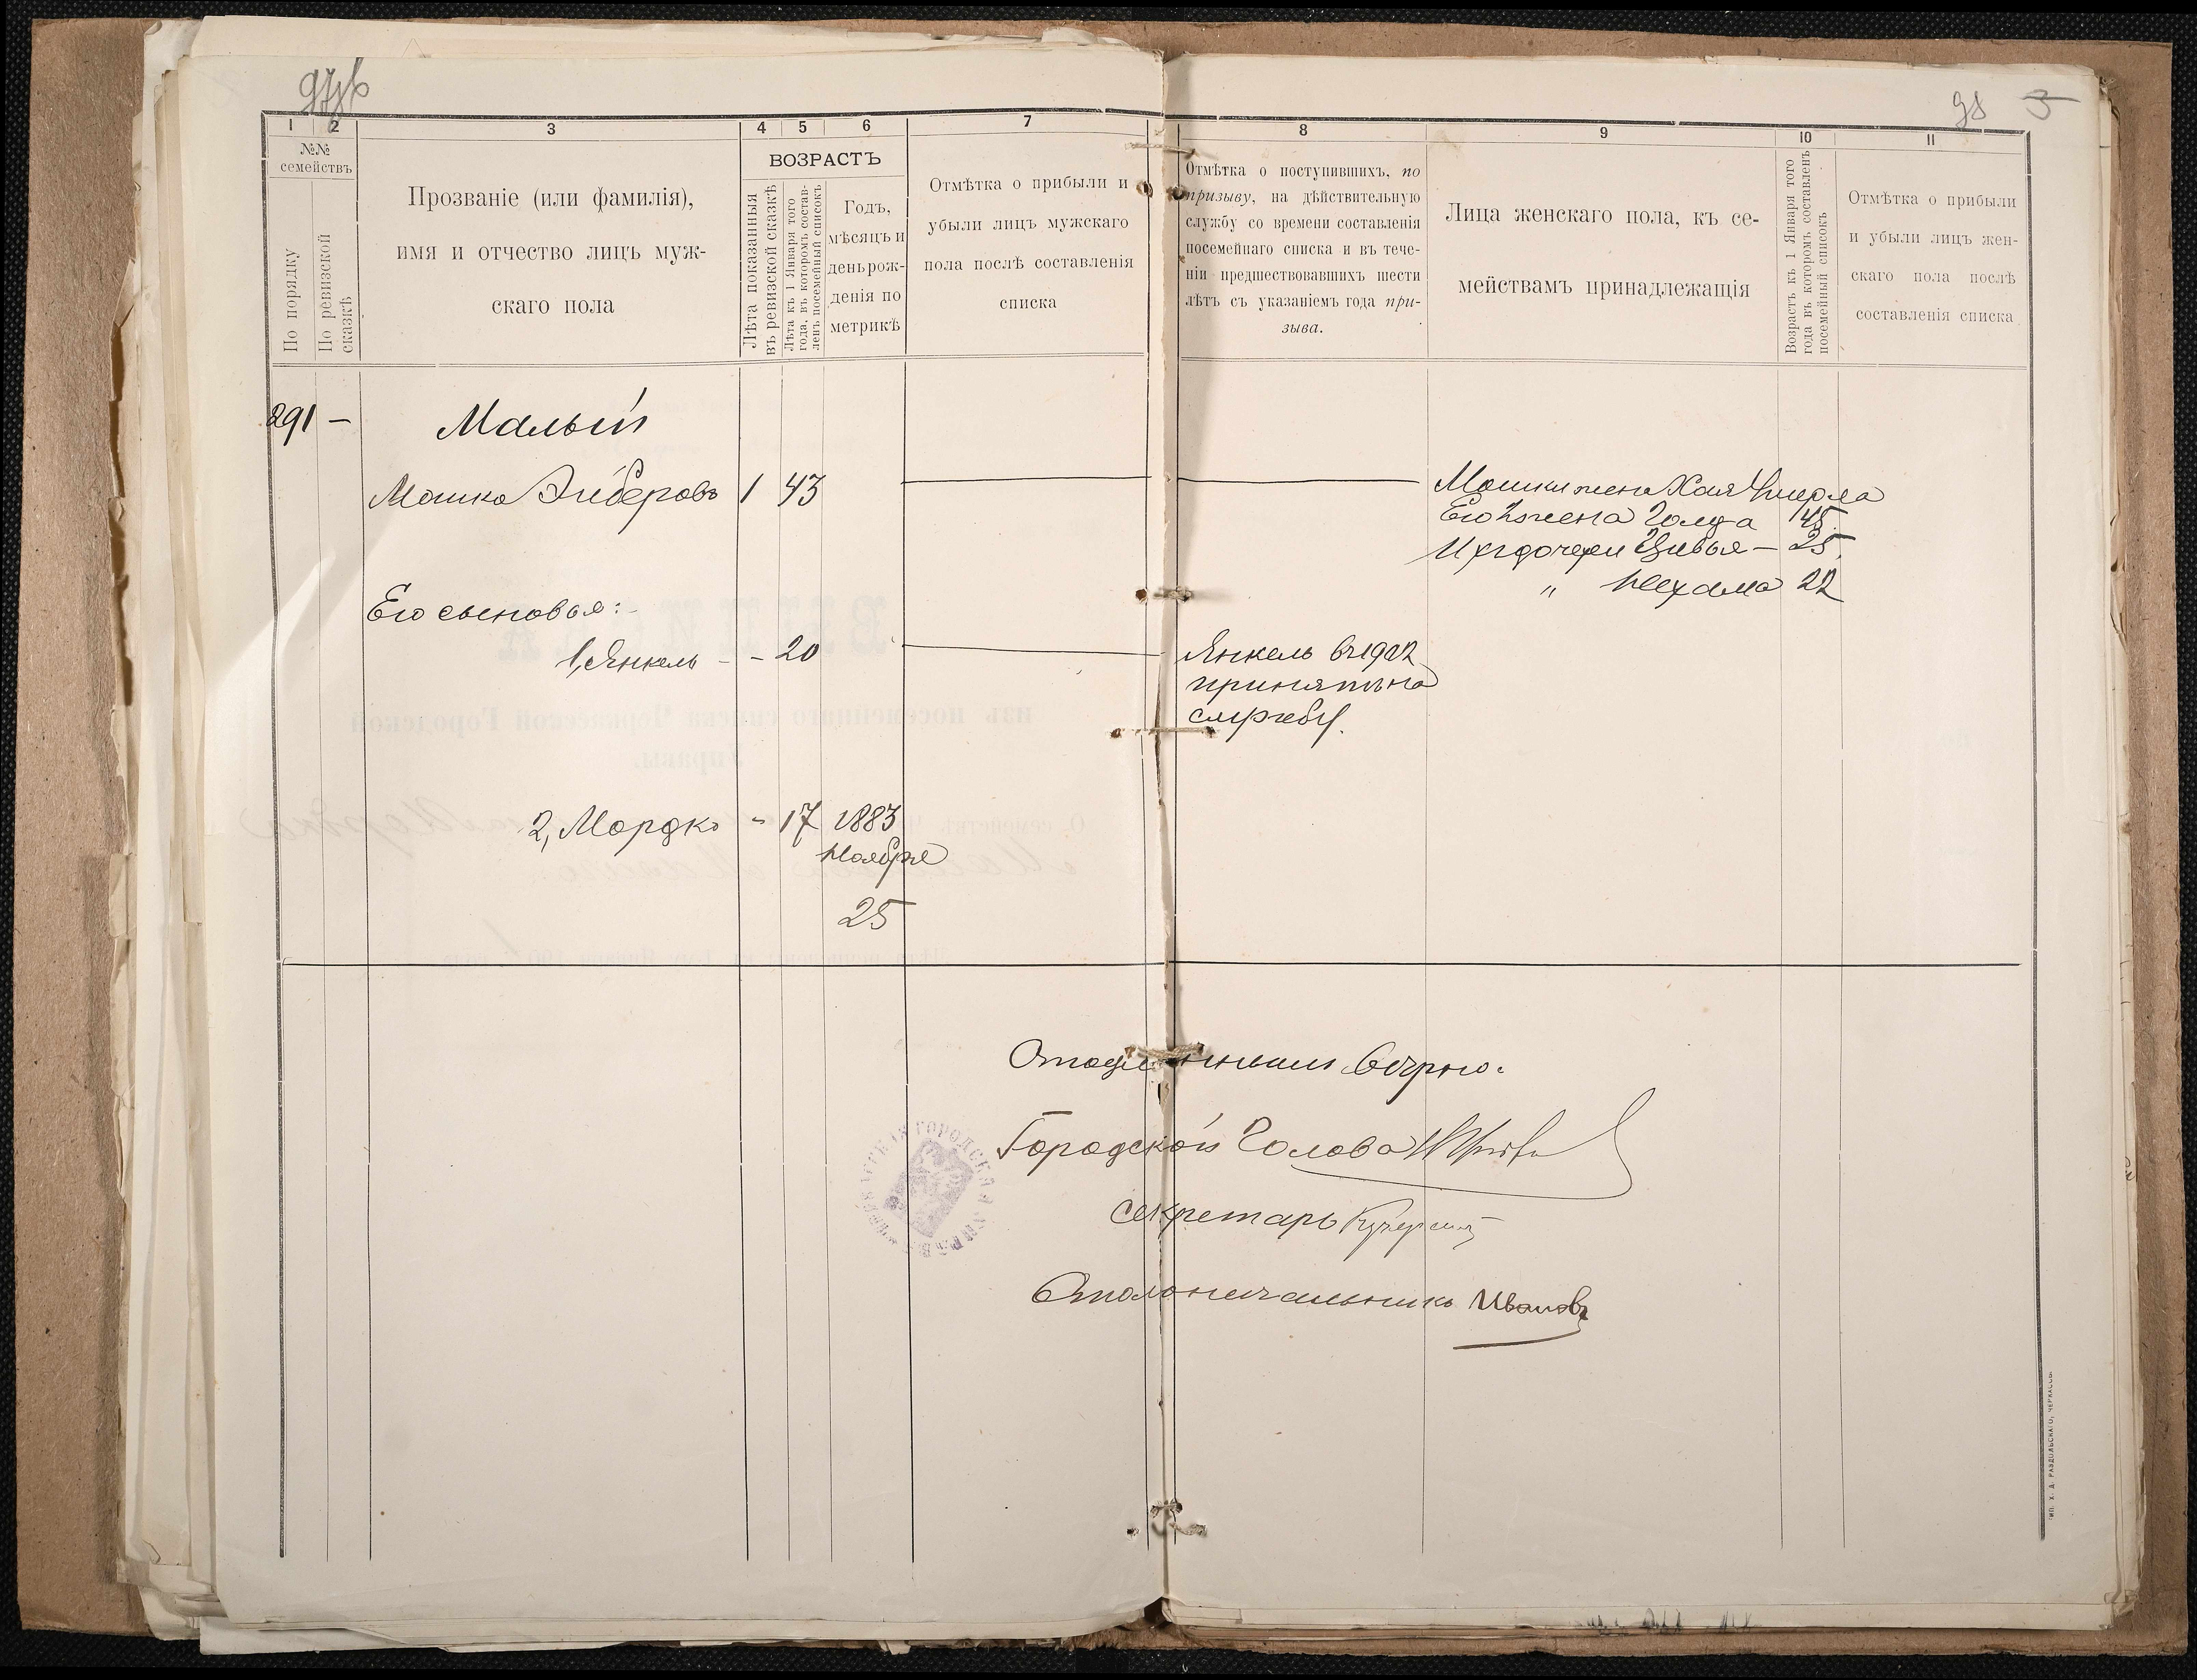 98 5
1 2 3 4 5 6 7 8 9 10 11
№№ семействъ
По порядку
По ревизской сказкѣ
Прозваніе (или фамилія),
имя и отчество лицъ муж-
скаго пола
ВОЗРАСТЪ
Лѣта показанныя
въ ревизской сказкѣ
Лѣта къ 1 Января того
года, въ которомъ состав-
ленъ посемейный списокъ
Годъ,
мѣсяцъ и
день рож-
денія по
метрикѣ
Отмѣтка о прибыли и
убыли лицъ мужскаго
пола послѣ составленія
списка
Отмѣтка о поступившихъ, по
призыву, на дѣйствительную
службу со времени составленія
посемейнаго списка и въ тече-
ніи предшествовавшихъ шести
лѣтъ съ указаніемъ года при-
зыва.
Лица женскаго пола, къ се-
мействамъ принадлежащія
Возрастъ къ 1 Января того
года въ которомъ составленъ
посемейный списокъ
Отмѣтка о прибыли
и убыли лицъ жен-
скаго пола послѣ
составленія списка
291 — Малый
Мошко 1 43
Мошки жена Хая
Его 2 жена Голда 45
Ихъ дочери Цивья — 25
" Нехама 22
Его сыновья:
1, Янкель - - 20
Янкель въ 1902
принятъ на
службу.
2, Мордко - 17 1883
Ноября
25
вѣрно.
Городской Голова
Секретарь
Столоначальникъ Ивановъ
ГОРОДСКАЯ УПРАВА
ТИП. Х. Д. РАЗДОЛЬСКАГО, ЧЕРКАССЫ.